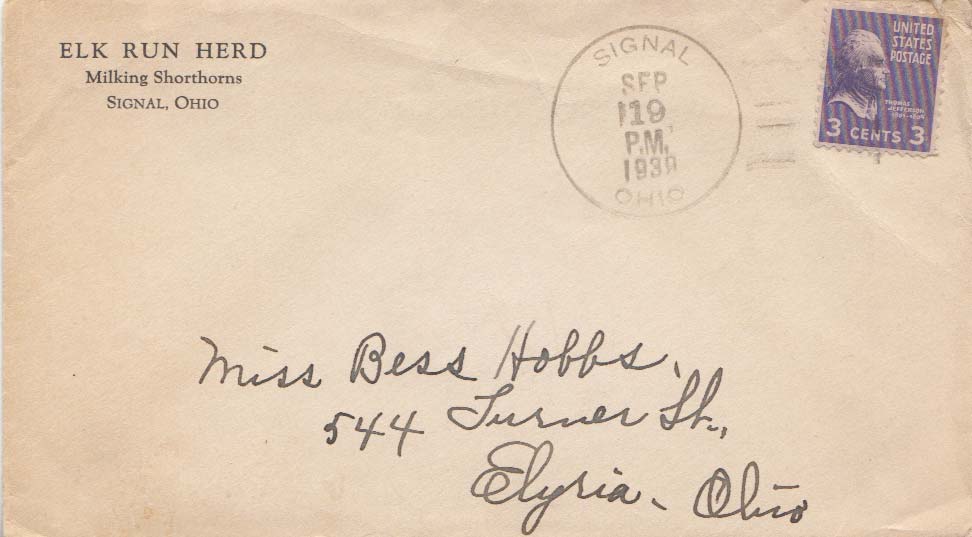 ELK RUN HERD
Milking Shorthorns
SIGNAL, OHIO
SIGNAL
SEP
19
P.M.
1939
OHIO
UNITED
STATES
POSTAGE
THOMAS
JEFFERSON
1801-1809
3 CENTS 3
Miss Bess Hobbs,
544 Turner St.,
Elyria - Ohio